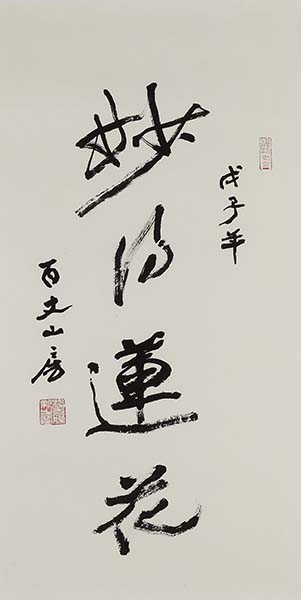 戊子年
妙蓮花
百丈山房